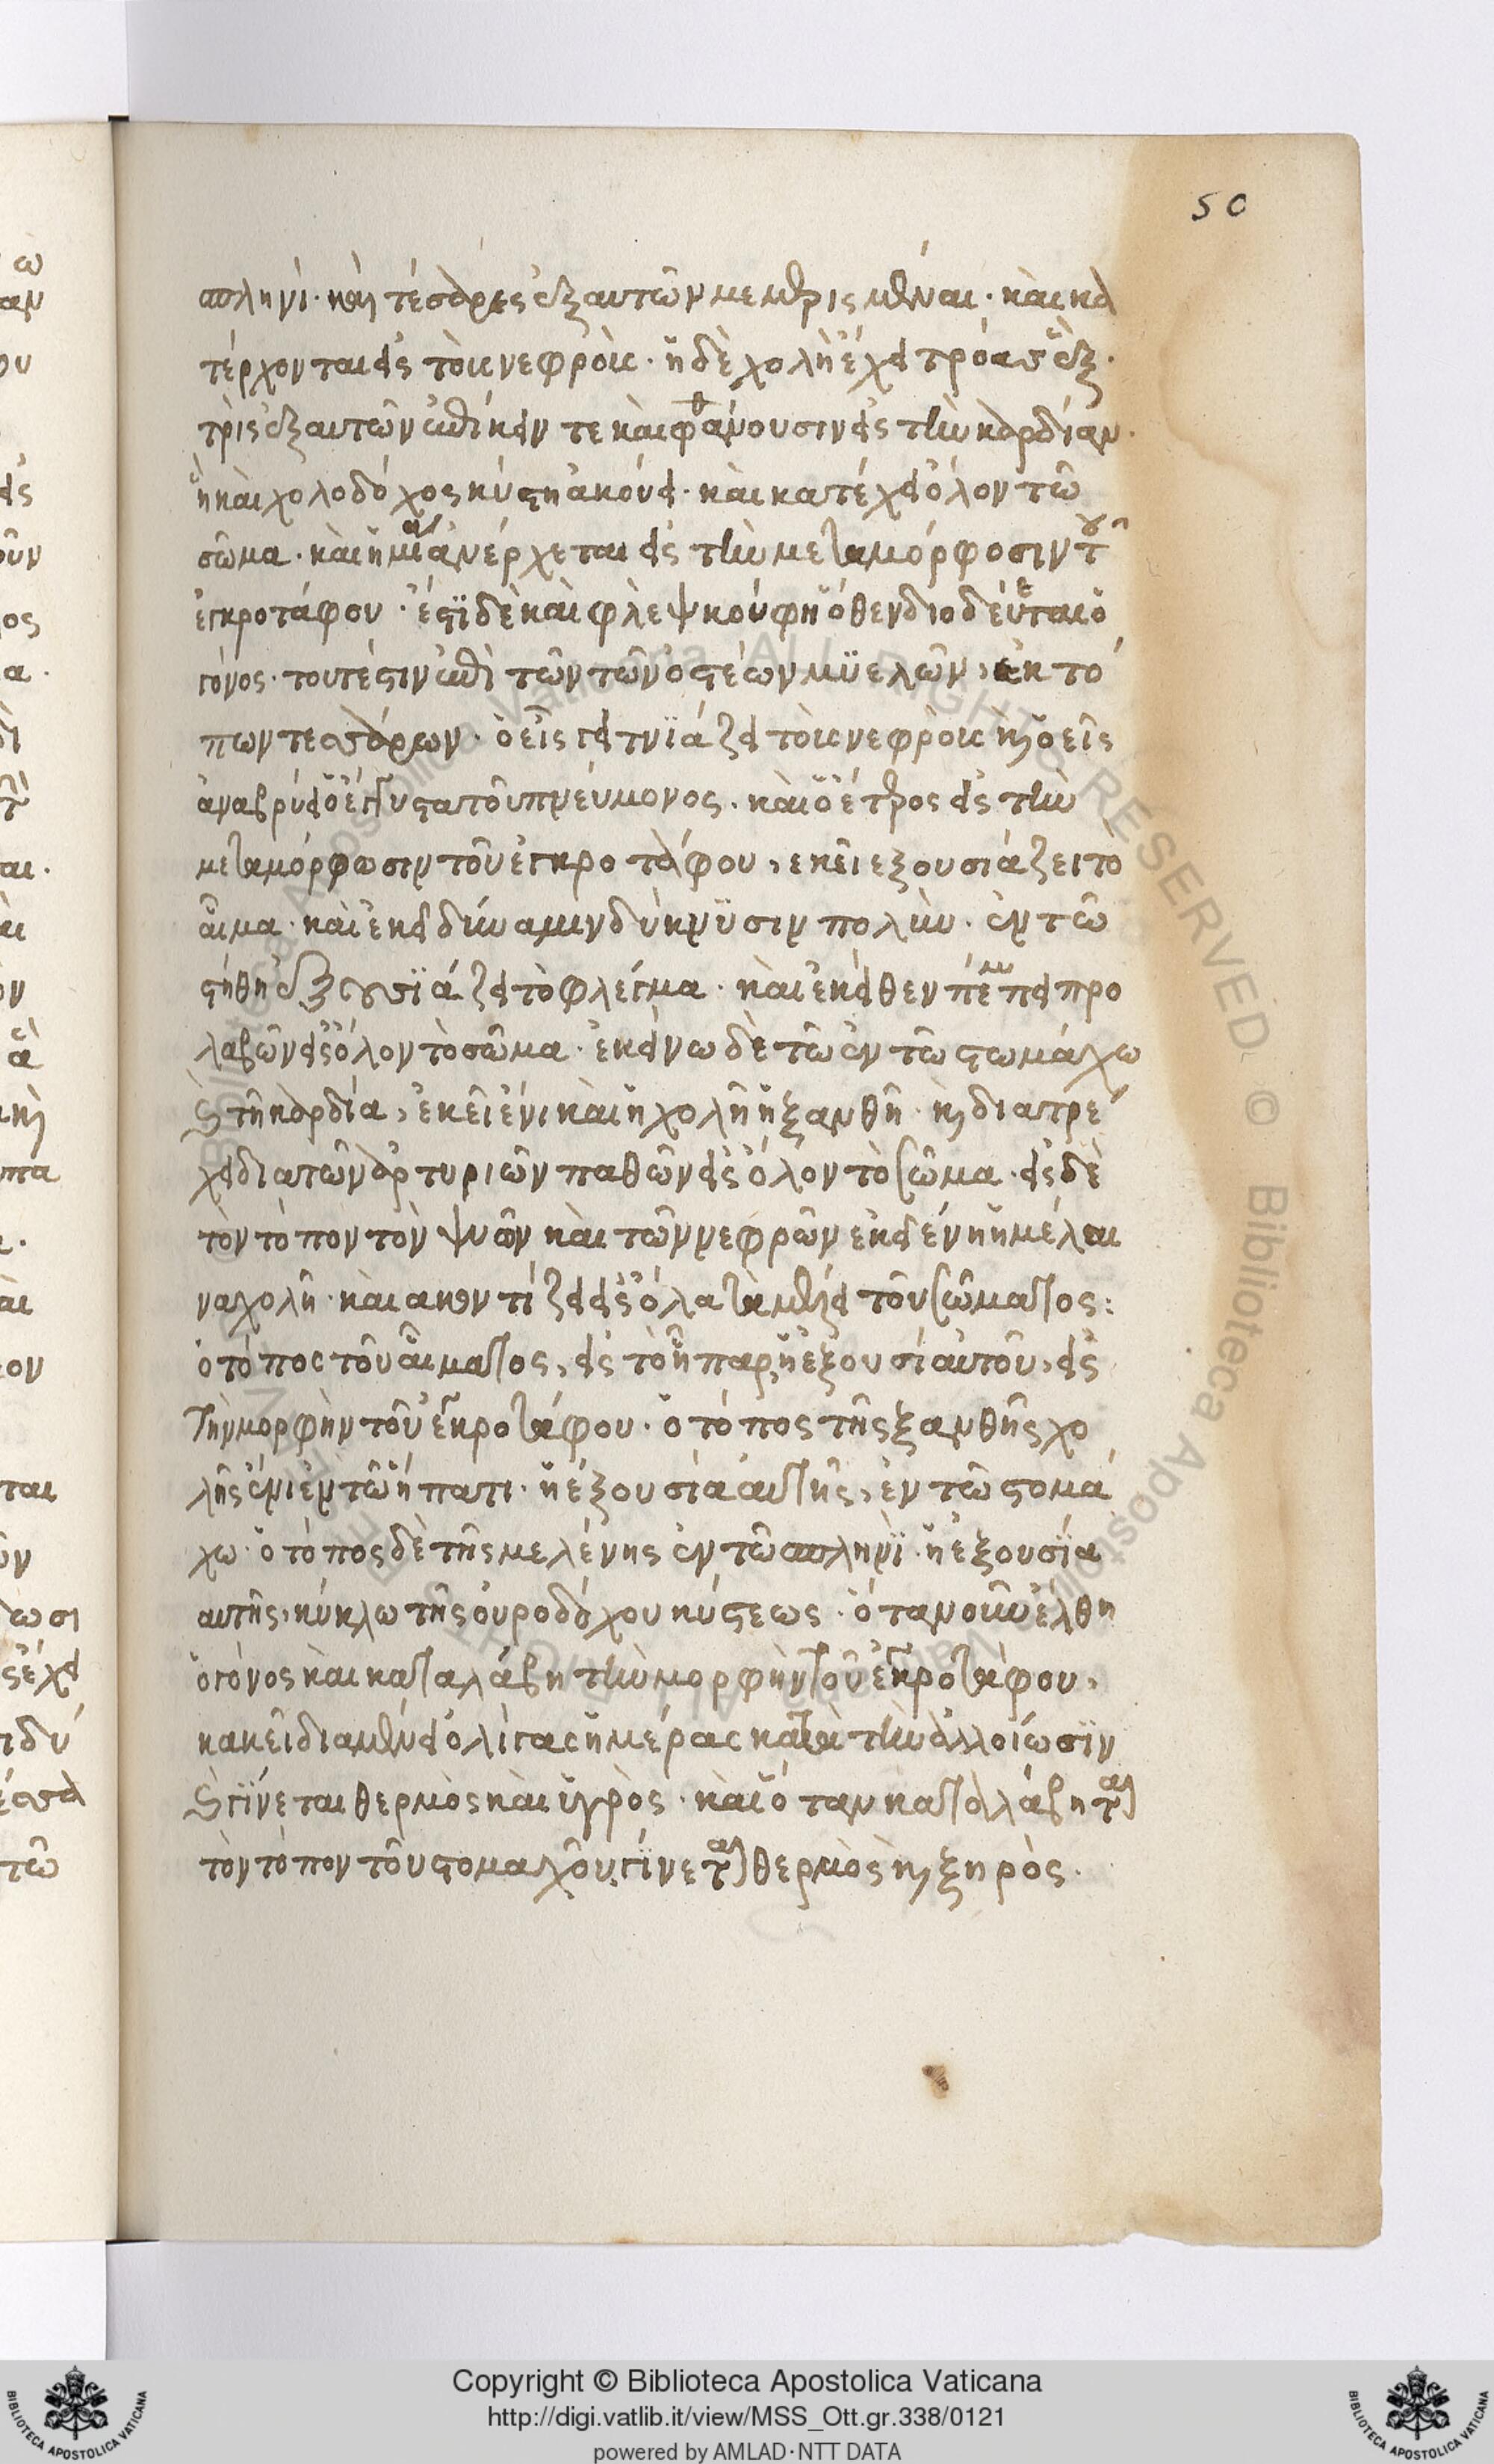 50
σπληνὶ· καὶ τέσσαρες ἐξ αυτῶν μεμερισμέναι· κὰι κα
τέρχονται εἰς τὸις νεφρὸις· ἡ δὲ χολὴ ἔχει τρόας ἓξ·
τρὶς ἐξ αυτῶν τε κὰι φθάνουσιν εἰς τὴν καρδίαν·
ἣ κὰι χολοδόχος κύστη ἀκούει· κὰι κατέχει ὅλον τῶ
σῶμα· κὰι ἡ μία ἀνέρχεται εἰς τὴν μεταμόρφοσιν τοῦ
ἐγκροτάφου· ἐστῒ δὲ κὰι φλὲψ κούφη ὅθεν διοδεύεται ὁ
γόνος· τουτέστιν ἐπὶ τῶν τῶν ὀστέων μϋελῶν, ἐκ τό
πων τεσσάρων· ὁ εἷς γειτνϊάζει τὸις νεφρὸις κὶ ὁ εἷς
ἀναβρύει ὁ ἐγγὺς τα τοῦ πνεύμονος· κὰι ὁ ἕτερος εἰς τὴν
μεταμόρφωσιν τοῦ ἐγκροτάφου, εκεῖ εξουσιάζει τὸ
αἷμα· κὰι ἐκεῖ δύναμιν δύκνϋσιν πολὺν· ἐν τῶ
στήθη ἐξουσϊάζει τὸ φλέγμα· κὰι ἐκεῖθεν πέμπει προ
λαβῶν εἰς ὅλον τὸ σῶμα· ἐκείνω δὲ τῶ ἐν τῶ στωμάχω
καὶ τῆ καρδία, ἐκεῖ ἔνι κὰι ἡ χολὴ ἡ ξανθὴ· κὶ διατρέ
χει δια τῶν ἀρτυριῶν παθῶν εἰς ὅλον τὸ σῶμα· εἰς δὲ
τὸν τόπον τὸν ψυῶν κὰι τῶν νεφρῶν ἐκεῖ ἔνη ἡ μέλαι
να χολῆ· κὰι ακοντίζει εἰς ὅλα τὰ μέρει τοῦ σώματος:
ὁ τόπος τοῦ αἵματος, εἰς τὸ ἧπαρ, ἡ ἐξουσία αὐτοῦ, εἰς
τὴν μορφὴν τοῦ ἐγκροτάφου· ὁ τόπος τῆς ξανθῆς χο
λῆς ἔνι ἐν τῶ ἥπατι· ἡ ἐξουσία ἀυτῆς, ἐν τῶ στομά
χω· ὁ τόπος δὲ τῆς μελένης ἐν τῶ σπληνῒ· ἡ ἐξουσῒα
αυτῆς, κύκλω τῆς ὀυροδόχου κύστεως· ὅταν οὖν ἔλθη
ὁ γόνος κὰι καταλάβη τὴν μορφὴν τοῦ ἐγκροτάφου,
κακεῖ διαμένει ὀλίγας ἡμέρας κατὰ τὴν ἀλλοίωσϊν
καὶ γίνεται θερμὸς κὰι ὑγρὸς· κὰι ὅταν καταλάβηται
τὸν τόπον τοῦ στομαχοῦ, γίνεται θερμὸς κὶ ξηρὸς·
Copyright © Biblioteca Apostolica Vaticana
http://digi.vatlib.it/view/MSS_Ott.gr.338/0121
powered by AMLAD·NTT DATA